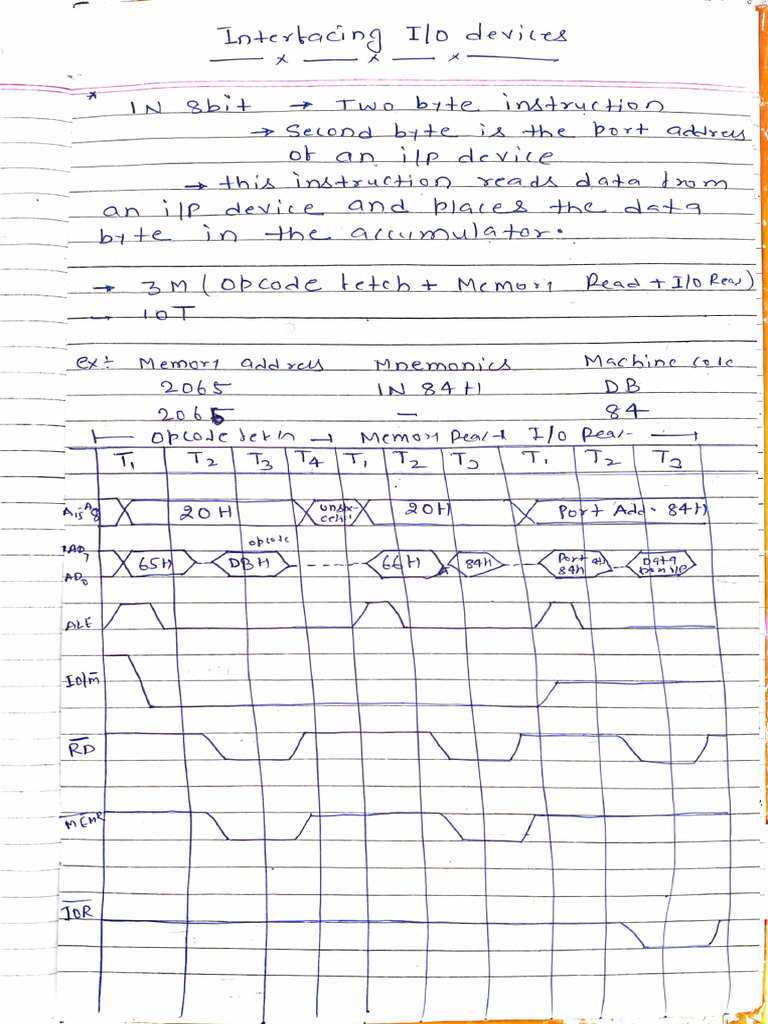 Interfacing I/O devices
* IN 8bit → Two byte instruction
→ Second byte is the port address
of an i/p device
→ this instruction reads data from
an i/p device and places the data
byte in the accumulator.
→ 3M (Opcode fetch + Memory Read + I/O Read)
— 10T
ex:- Memory address Mnemonics Machine code
2065 IN 84H DB
2066 — 84
Opcode fetch → Memory Read → I/O Read →
T1 T2 T3 T4 T1 T2 T3 T1 T2 T3
A15 A8 20H Unspecified 20H Port Add. 84H
opcode
AD7 65H DBH 66H 84H Port 84H Data from I/P
AD0
ALE
IO/M̅
R̅D̅
M̅E̅M̅R̅
I̅O̅R̅